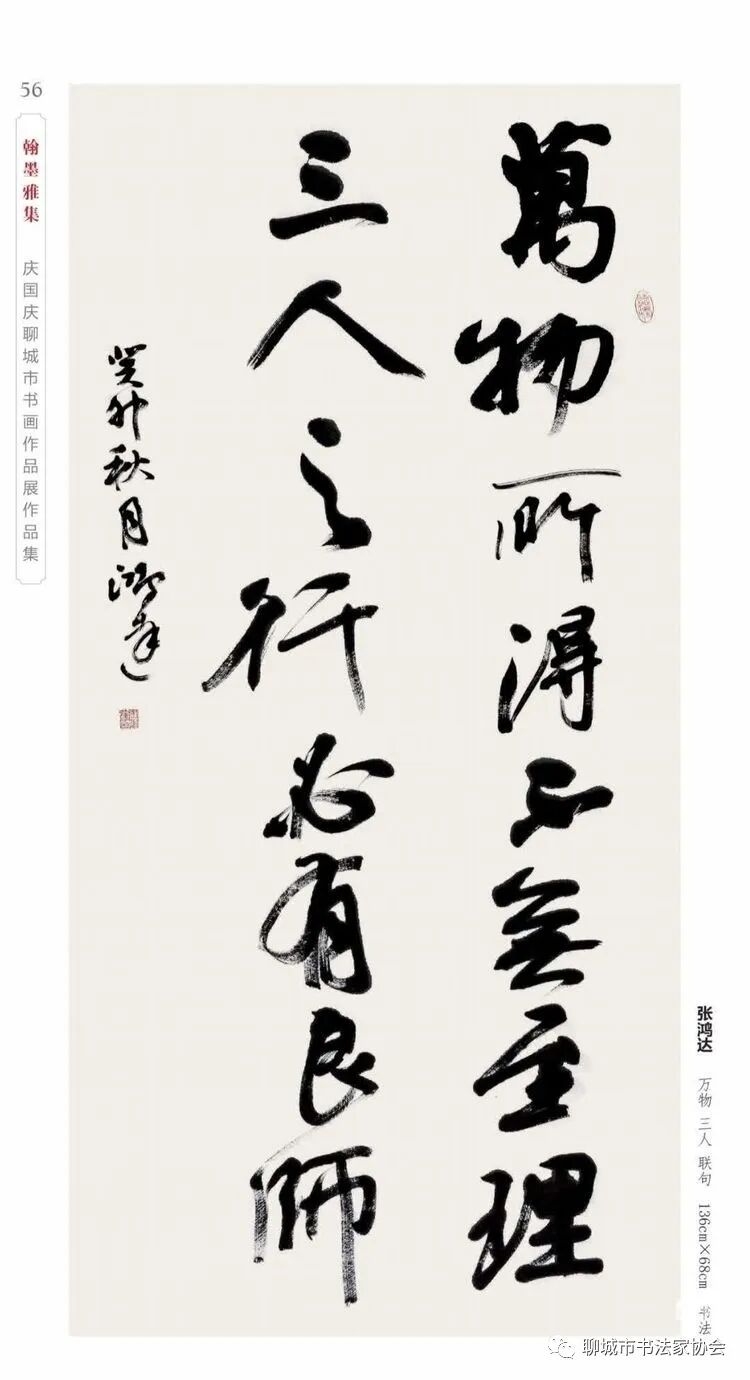 56
翰墨雅集 庆国庆聊城市书画作品展作品集
萬物所得不無至理
三人之行必有良師
癸卯秋月鴻達
张鸿达 万物 三人 联句 136cm×68cm 书法
聊城市书法家协会